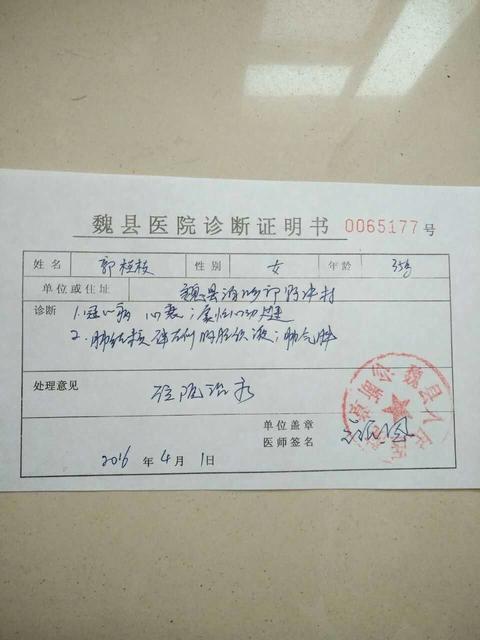 魏县医院诊断证明书 0065177号
姓名 郭桂枝 性别 女 年龄 35岁
单位或住址 魏县
诊断 1.冠心病 心衰；房性心动过速
2.肺结核 伴右侧胸腔积液；肺气肿
处理意见 住院治疗
单位盖章
医师签名
2016年4月1日